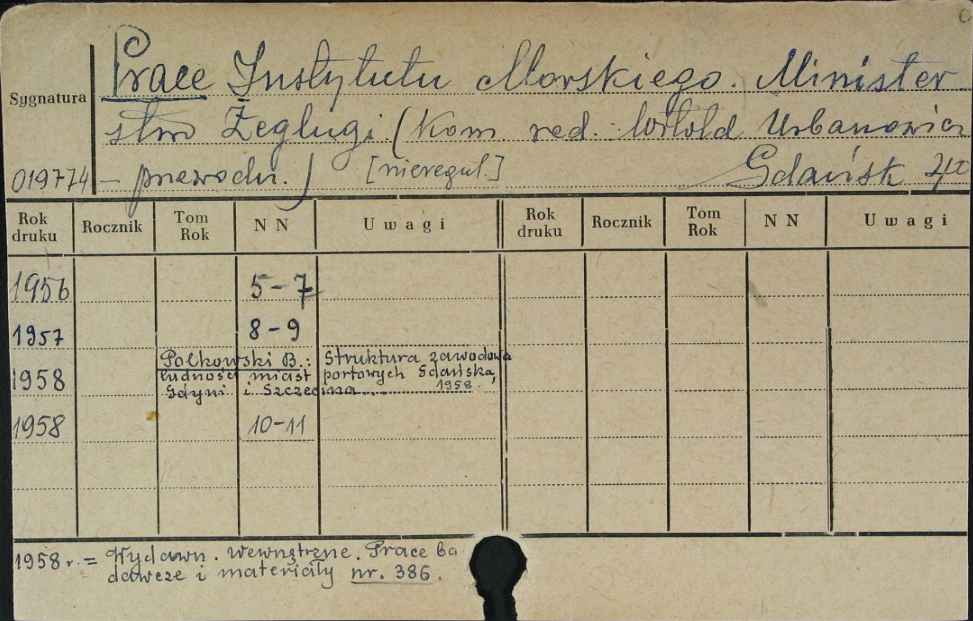 Prace Instytutu Morskiego. Minister
Sygnatura
stwo Żeglugi. (Kom. red. Witold Urbanowicz
019774 – przewodn.) [nieregul.] Gdańsk 4°
Rok druku Rocznik Tom Rok NN Uwagi Rok druku Rocznik Tom Rok NN Uwagi
1956 5-7
1957 8-9
Polkowski B.: Struktura zawodowa
1958 ludności miast portowych Gdańska,
Gdyni i Szczecina... 1958.
1958 10-11
1958 r. = Wydawn. wewnętrzne. Prace ba
dawcze i materiały nr. 386.